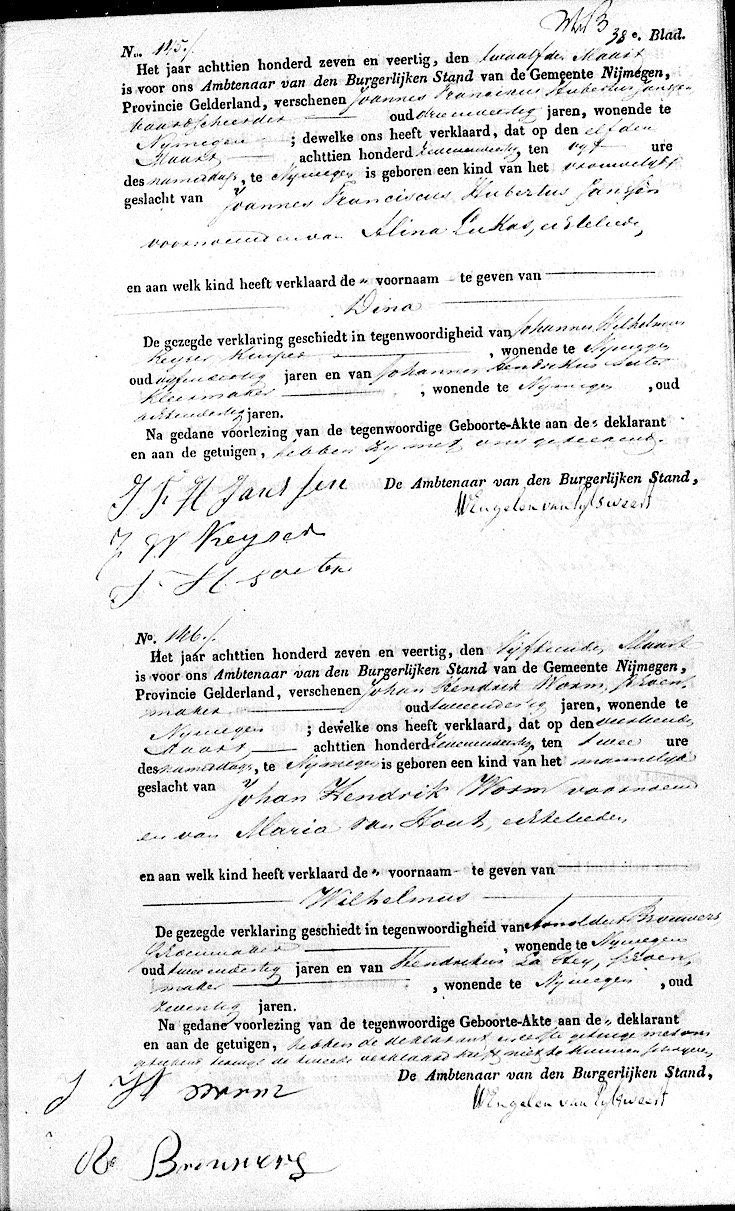 38e. Blad.
No. 145.
Het jaar achttien honderd zeven en veertig, den twaalfden Maart
is voor ons Ambtenaar van den Burgerlijken Stand van de Gemeente Nijmegen,
Provincie Gelderland, verschenen Joannes Franciscus Hubertus Janssen
baardscheerder oud drieendertig jaren, wonende te
Nymegen ; dewelke ons heeft verklaard, dat op den elfden
Maart achttien honderd zevenenveertig ten vyf ure
des namiddags, te Nymegen is geboren een kind van het vrouwelyk
geslacht van Joannes Franciscus Hubertus Janssen
voornoemd en van Alina Lukas, echtelieden,
en aan welk kind heeft verklaard de " voornaam te geven van
Dina
De gezegde verklaring geschiedt in tegenwoordigheid van Johannes Wilhelmus
Keyser Kuiper , wonende te Nymegen
oud vyfendertig jaren en van Johannes Hendrikus
Kleermaker , wonende te Nymegen , oud
achtendertig jaren.
Na gedane voorlezing van de tegenwoordige Geboorte-Akte aan de " deklarant
en aan de getuigen, hebben zy met ons geteekend.
De Ambtenaar van den Burgerlijken Stand,
J F H Janssen
J W Keyser
J H
No. 146.
Het jaar achttien honderd zeven en veertig, den Vyftienden Maart
is voor ons Ambtenaar van den Burgerlijken Stand van de Gemeente Nijmegen,
Provincie Gelderland, verschenen Johan Hendrik Worm, schoen,
maker oud tweeendertig jaren, wonende te
Nymegen ; dewelke ons heeft verklaard, dat op den veertienden
Maart achttien honderd zevenenveertig ten twee ure
des namiddags, te Nymegen is geboren een kind van het mannelyk
geslacht van Johan Hendrik Worm voornoemd
en van Maria van Hout, echtelieden
en aan welk kind heeft verklaard de " voornaam te geven van
Wilhelmus
De gezegde verklaring geschiedt in tegenwoordigheid van Arnoldus Brouwers
Schoenmaker , wonende te Nymegen
oud tweeendertig jaren en van Hendrikus La Hey, schoen,
maker , wonende te Nymegen , oud
zeventig jaren.
Na gedane voorlezing van de tegenwoordige Geboorte-Akte aan de " deklarant
en aan de getuigen, hebben de deklarant en eerste getuige met ons
geteekend terwyl de tweede verklaard heeft niet te kunnen schryven
De Ambtenaar van den Burgerlijken Stand,
J H worm
Brouwers